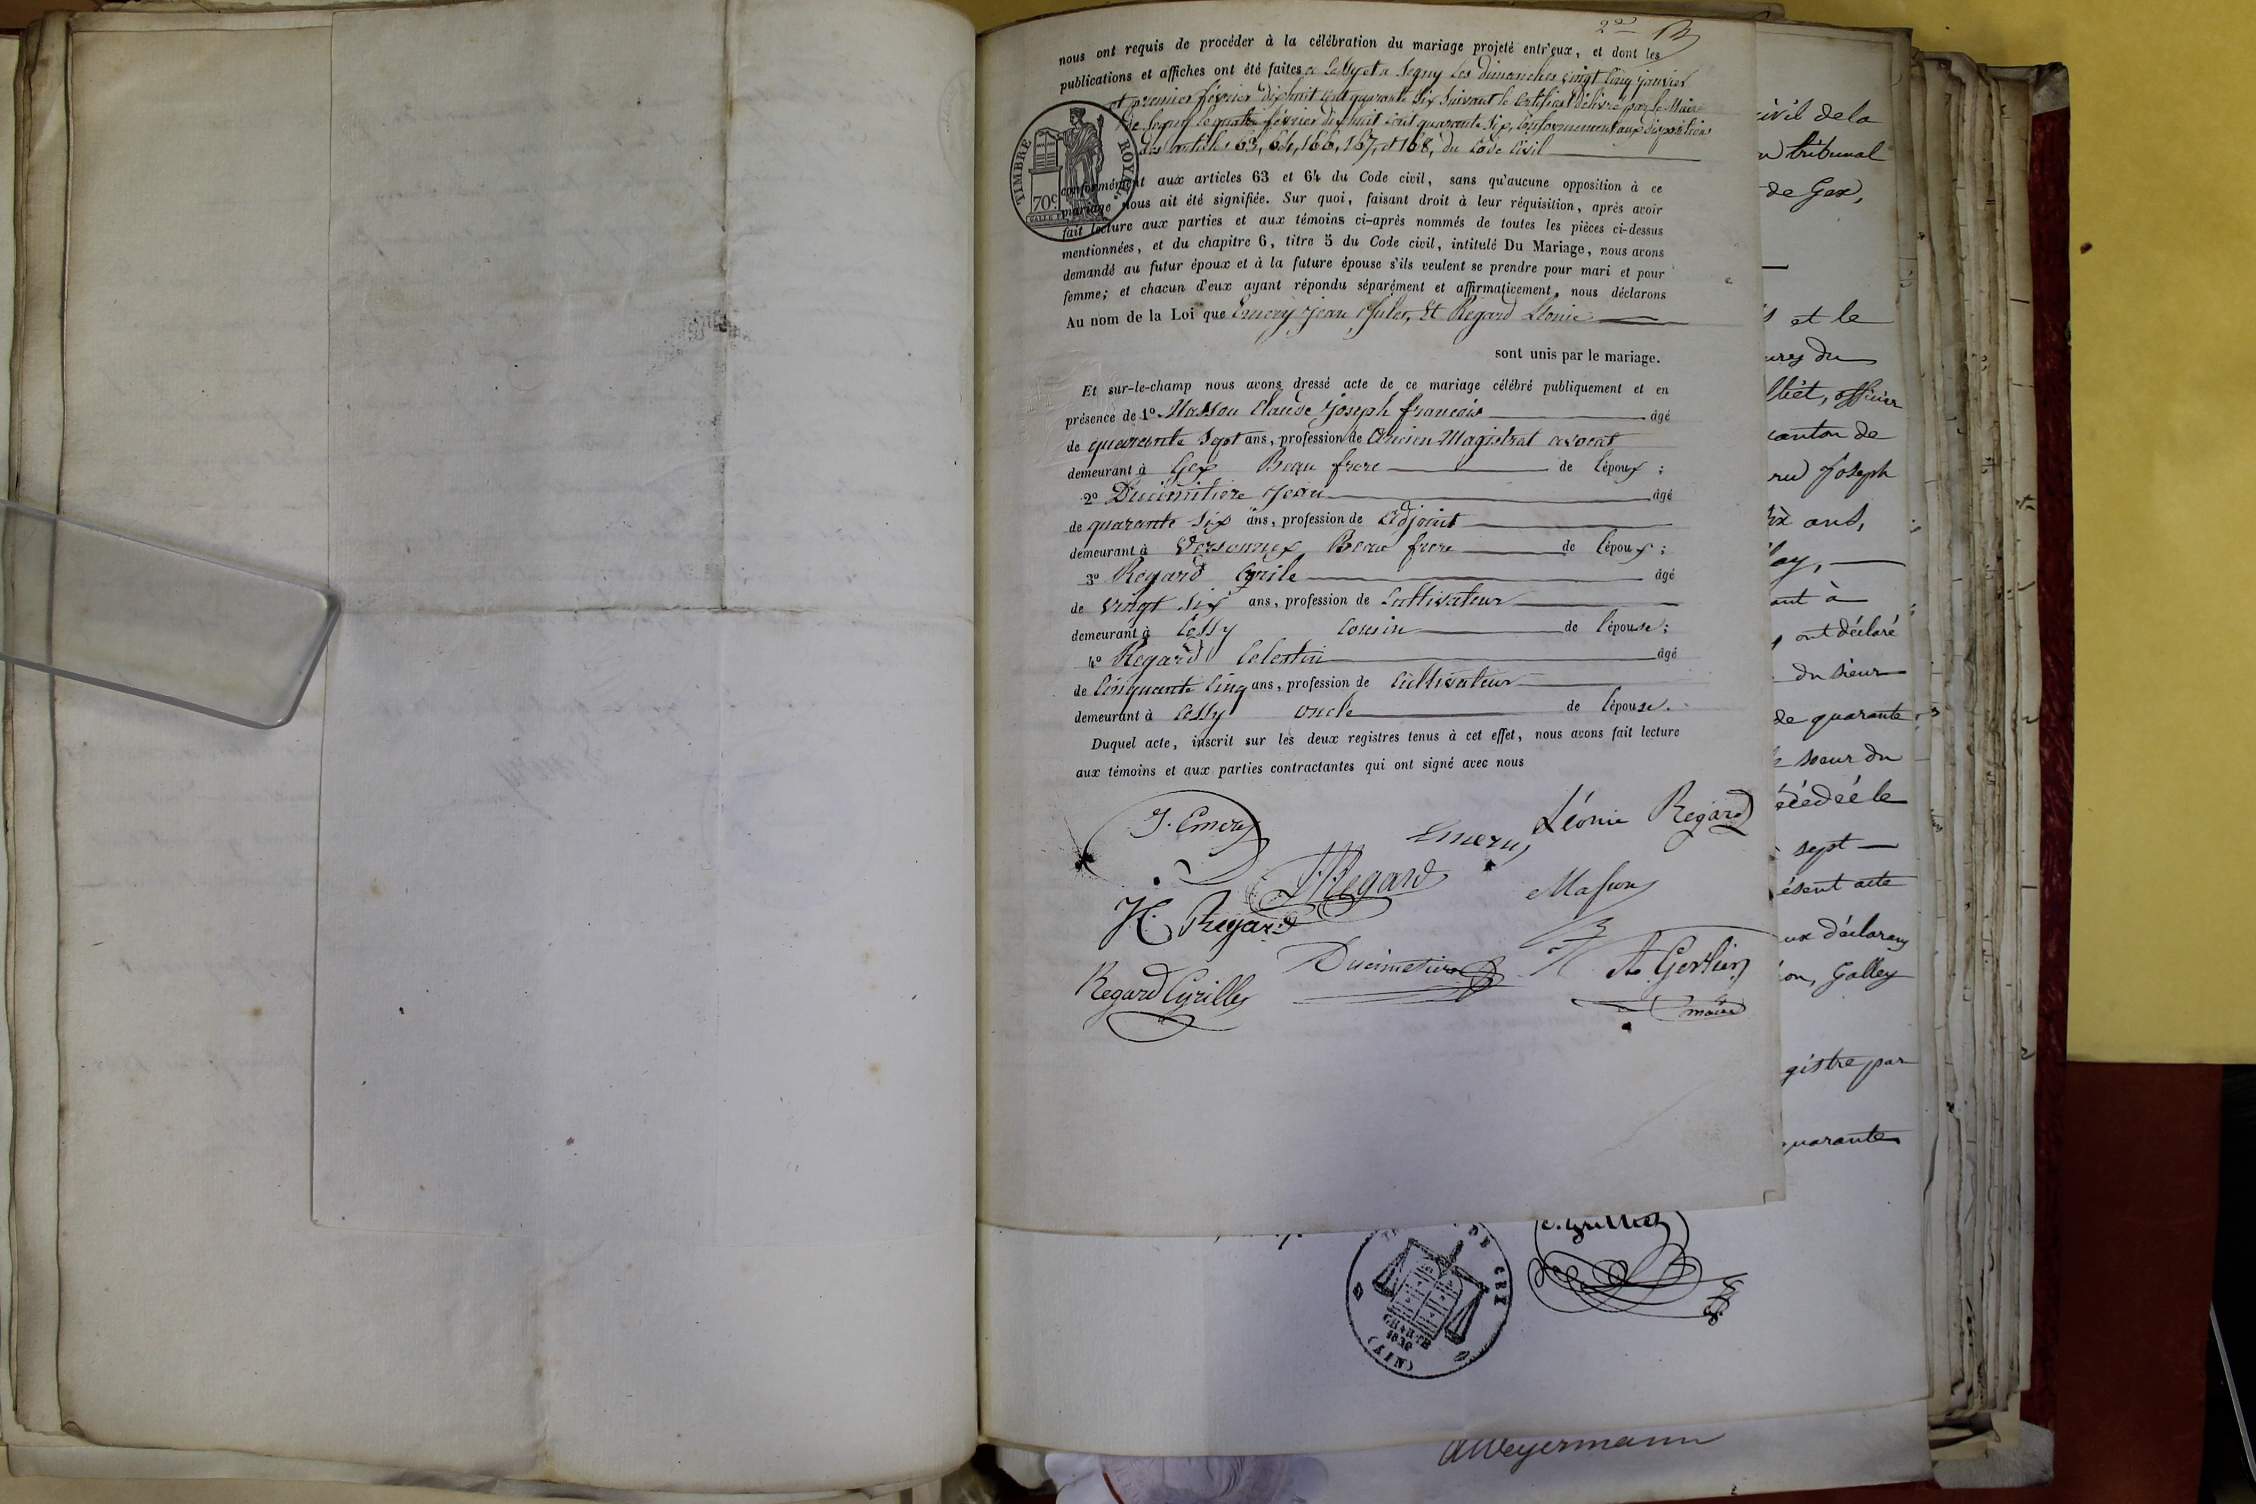 2de
nous ont requis de procéder à la célébration du mariage projeté entr'eux, et dont les
publications et affiches ont été faites a Cessy et a Segny les dimanches vingt cinq janvier
et premier février dix huit cent quarante six suivant le certificat délivré par le Maire
de Segny le quatre février dix huit cent quarante six, conformément aux dispositions
des articles 63, 64, 166, 167, et 168, du Code Civil
TIMBRE ROYAL
70c
conformément aux articles 63 et 64 du Code civil, sans qu'aucune opposition à ce
mariage nous ait été signifiée. Sur quoi, faisant droit à leur réquisition, après avoir
fait lecture aux parties et aux témoins ci-après nommés de toutes les pièces ci-dessus
mentionnées, et du chapitre 6, titre 5 du Code civil, intitulé Du Mariage, nous avons
demandé au futur époux et à la future épouse s'ils veulent se prendre pour mari et pour
femme; et chacun d'eux ayant répondu séparément et affirmativement, nous déclarons
Au nom de la Loi que Emery Jean Jules, Et Regard Léonie
sont unis par le mariage.
Et sur-le-champ nous avons dressé acte de ce mariage célébré publiquement et en
présence de 1o Masson Claude Joseph francois âgé
de quarante sept ans, profession de ancien Magistrat avocat
demeurant à Gex Beau frere de l'époux;
2o Ducimitiere Jean âgé
de quarante six ans, profession de adjoint
demeurant à Versonnex Beau frere de l'époux;
3o Regard Cyrile âgé
de vingt six ans, profession de cultivateur
demeurant à Cessy cousin de l'épouse;
4o Regard Celestin âgé
de Cinquante Cinq ans, profession de cultivateur
demeurant à Cessy oncle de l'épouse.
Duquel acte, inscrit sur les deux registres tenus à cet effet, nous avons fait lecture
aux témoins et aux parties contractantes qui ont signé avec nous
J. Emery
Emery
Léonie Regard
Regard
Masson
H. Regard
Ducimetiere
Gerlier
maire
Regard Cyrille
civil de la
tribunal
de Gex,
et le
du
officier
canton de
Joseph
ans,
ant à
ont déclaré
du sieur
de quarante
soeur du
décédée le
sept
ésent acte
ux déclarans
on, Galley
gistre par
quarante
DE GEX
CHARTE
1830
(AIN)
Weyermann